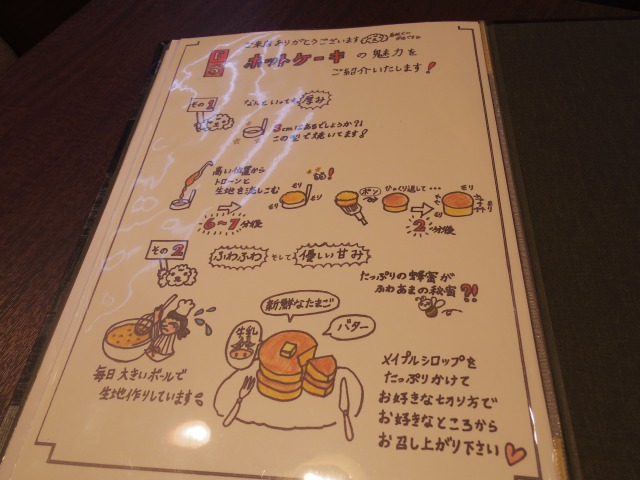 ご来店ありがとうございます
ホットケーキの魅力を
ご紹介いたします!
その1
なんといっても厚み
3cmにあるでしょうか?!
この型で焼いてます!
高い位置から
トローンと
生地を流しこむ
6~7分後
モリ
モリ
ポン
ひっくり返して・・・
2分後
モリ
その2
ふわふわ そして 優しい甘み
たっぷりの蜂蜜が
ふわあまの秘蜜?!
新鮮なたまご
牛乳
バター
毎日大きいボールで
生地作りしています
メイプルシロップを
たっぷりかけて
お好きな切り方で
お好きなところから
お召し上がり下さい